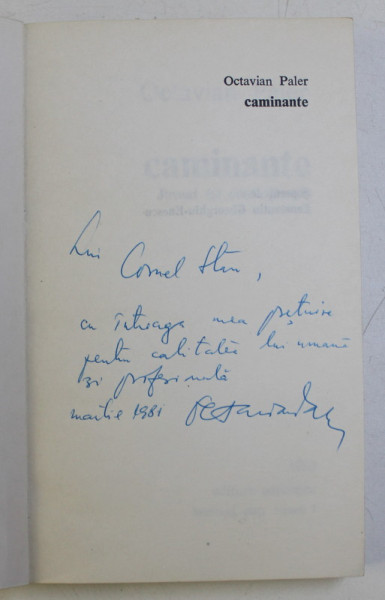 Octavian Paler
caminante
Lui Cornel Stan,
cu întreaga mea prețuire
pentru calitatea lui umană
și profesională
martie 1981 Octavian Paler